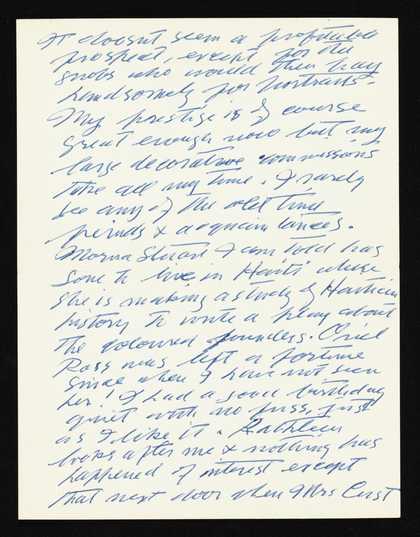 It doesn't seem a profitable
prospect, except for the
snobs who would then pay
handsomely for portraits.
My prestige is of course
great enough now but my
large decorative commissions
take all my time. I rarely
see any of the old time
friends & acquaintances.
Morna Stuart I am told has
gone to live in Haiti where
she is making a study of Haitian
history to write a play about
the coloured founders.
Ross was left a fortune
since when I have not seen
her! I had a good birthday
quiet with no fuss, just
as I like it. Kathleen
looks after me & nothing has
happened of interest except
that next door when Mrs